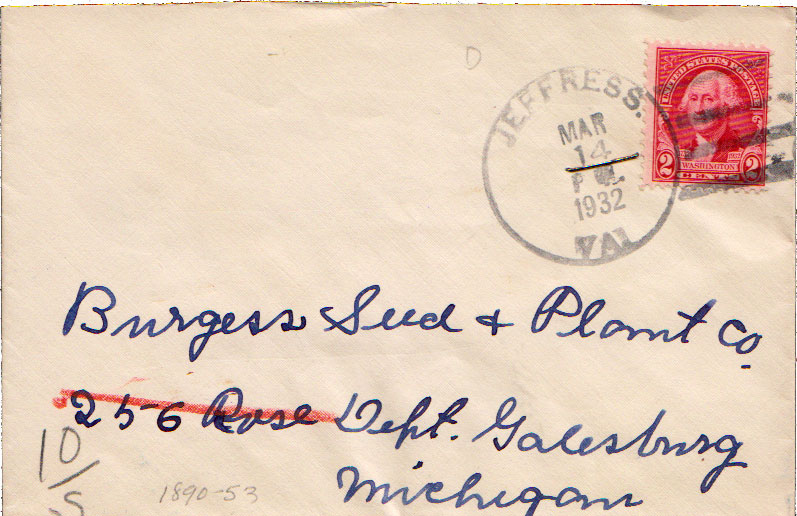 JEFFRESS.
MAR
14
P M.
1932
VA.
UNITED STATES POSTAGE
1932
2 WASHINGTON 2
CENTS
Burgess Seed & Plant Co.
256 Rose Dept. Galesburg
Michigan
10/5
1890-53